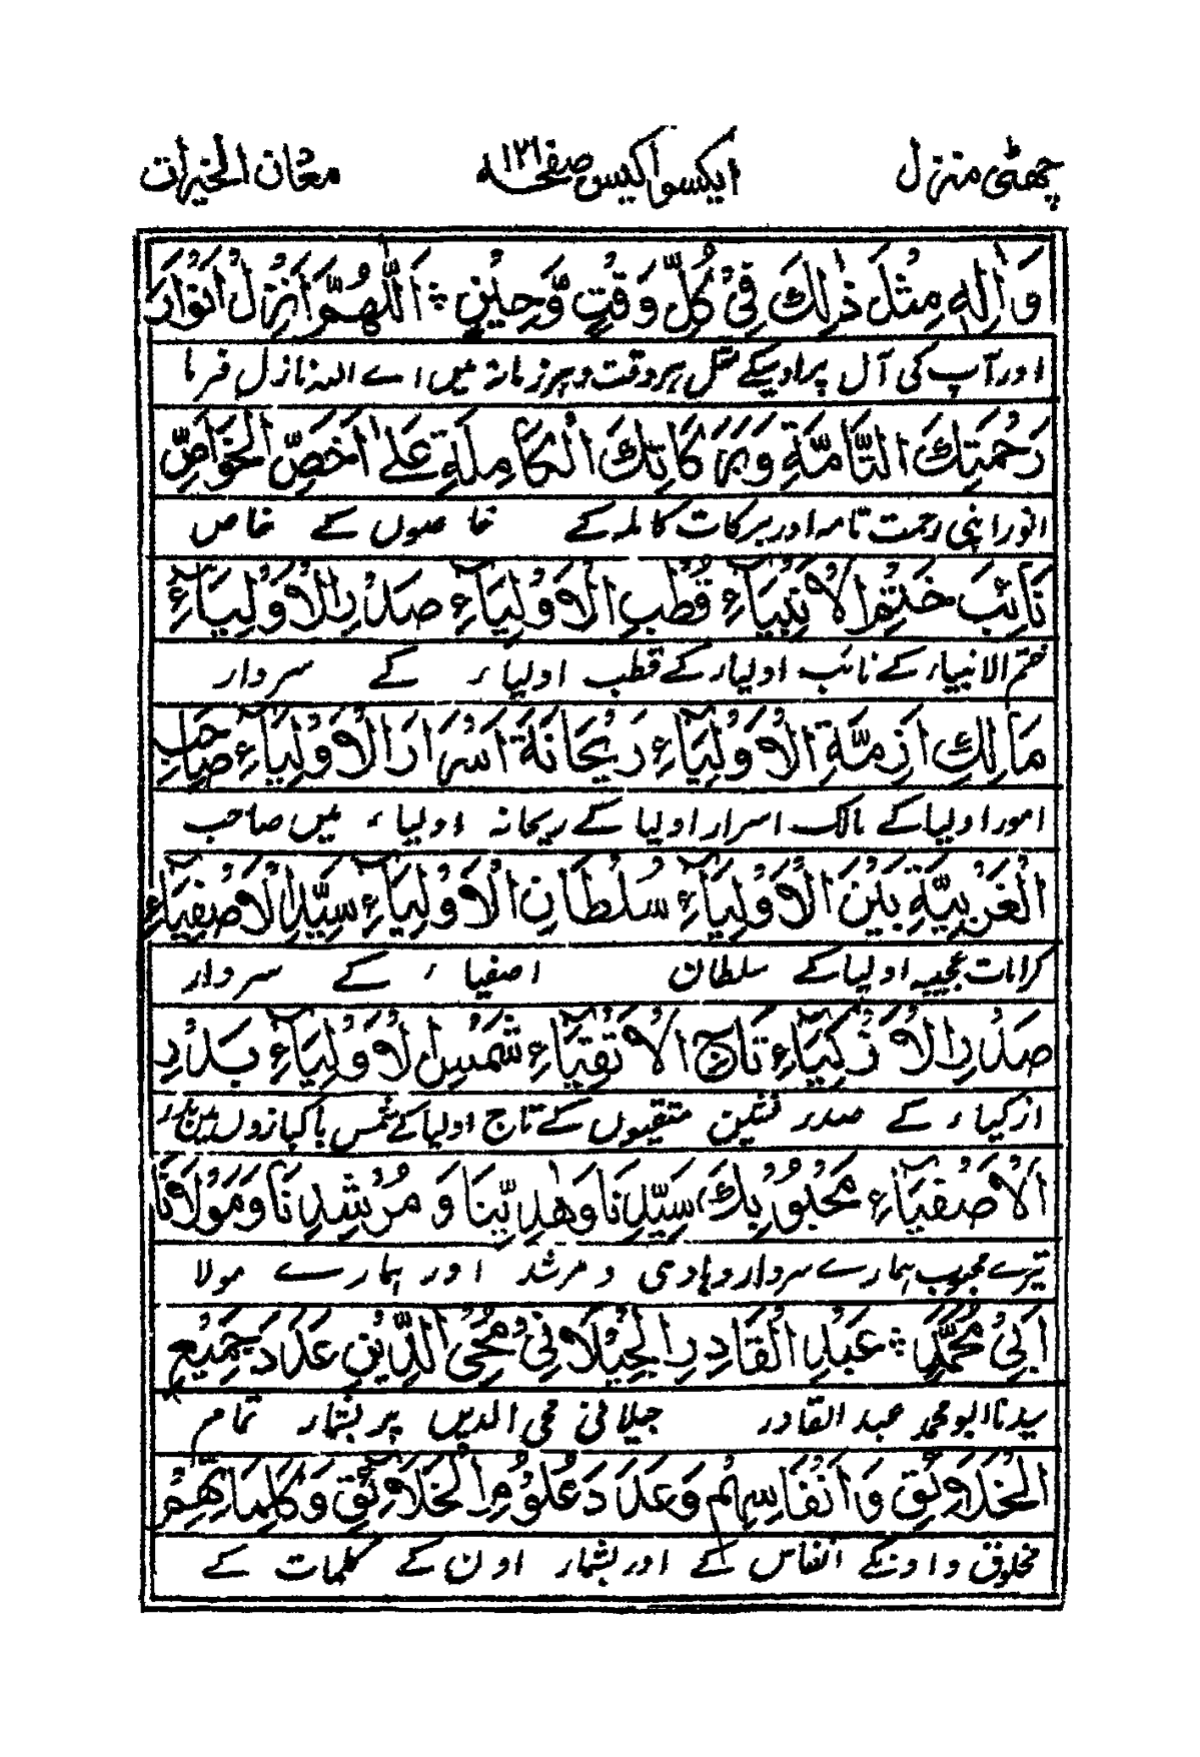 چھٹی منزل ایکسو اکیس صفحہ ۱۲۱ مغان الخیرات
وَاٰلِهٖ مِثْلَ ذٰلِكَ فِيْ كُلِّ وَقْتٍ وَّحِيْنٍ ؞ اَللّٰهُمَّ اَنْزِلْ اَنْوَارَ
اور آپ کی آل پر اوسکے مثل ہر وقت و ہر زمانہ میں اے اللہ نازل فرما
رَحْمَتِكَ التَّامَّةِ وَبَرَكَاتِكَ الْكَامِلَةِ عَلٰى اَخَصِّ الْخَوَاصِّ
انور اپنی رحمت تامہ اور برکات کاملہ کے خاصوں کے خاص
نَائِبَ خَتْمِ الْاَنْبِيَآءِ قُطْبِ الْاَوْلِيَآءِ صَدْرِ الْاَوْلِيَآءِ
ختم الانبیاء کے نائب اولیاء کے قطب اولیاء کے سردار
مَالِكِ اَزِمَّةِ الْاَوْلِيَآءِ رَيْحَانَةَ اَسْرَارَ الْاَوْلِيَآءِ صَاحِبِ
امور اولیا کے مالک اسرار اولیا کے ریحانہ اولیاء میں صاحب
الْغَرْبِيَّةِ بَيْنَ الْاَوْلِيَآءِ سُلْطَانِ الْاَوْلِيَآءِ سَيِّدِ الْاَصْفِيَآءِ
کرامات عجیبہ اولیا کے سلطان اصفیاء کے سردار
صَدْرِ الْاَزْكِيَآءِ تَاجِ الْاَتْقِيَآءِ شَمْسِ الْاَوْلِيَآءِ بَدْرِ
ازکیاء کے صدر متقیوں کے تاج اولیا کے شمس پاکبازوں میں بدر
الْاَصْفِيَآءِ مَحْبُوْبِكَ، سَيِّدِنَا وَهٰدِيِّنَا وَ مُرْشِدِنَا وَمَوْلَانَا
تیرے محبوب ہمارے سردار و ہادی و مرشد اور ہمارے مولا
اَبِيْ مُحَمَّدٍ ؞ عَبْدِ الْقَادِرِ الْجِيْلَانِيْ مُحْيِ الدِّيْنِ عَدَدَ جَمِيْعِ
سیدنا ابو محمد عبد القادر جیلانی محی الدین پر بشمار تمام
الْخَلَائِقِ وَاَنْفَاسِهِمْ وَعَدَدَ عُلُوْمِ الْخَلَائِقِ وَكَلِمَاتِهِمْ
مخلوق و اونکے انفاس کے اور بشمار اون کے کلمات کے